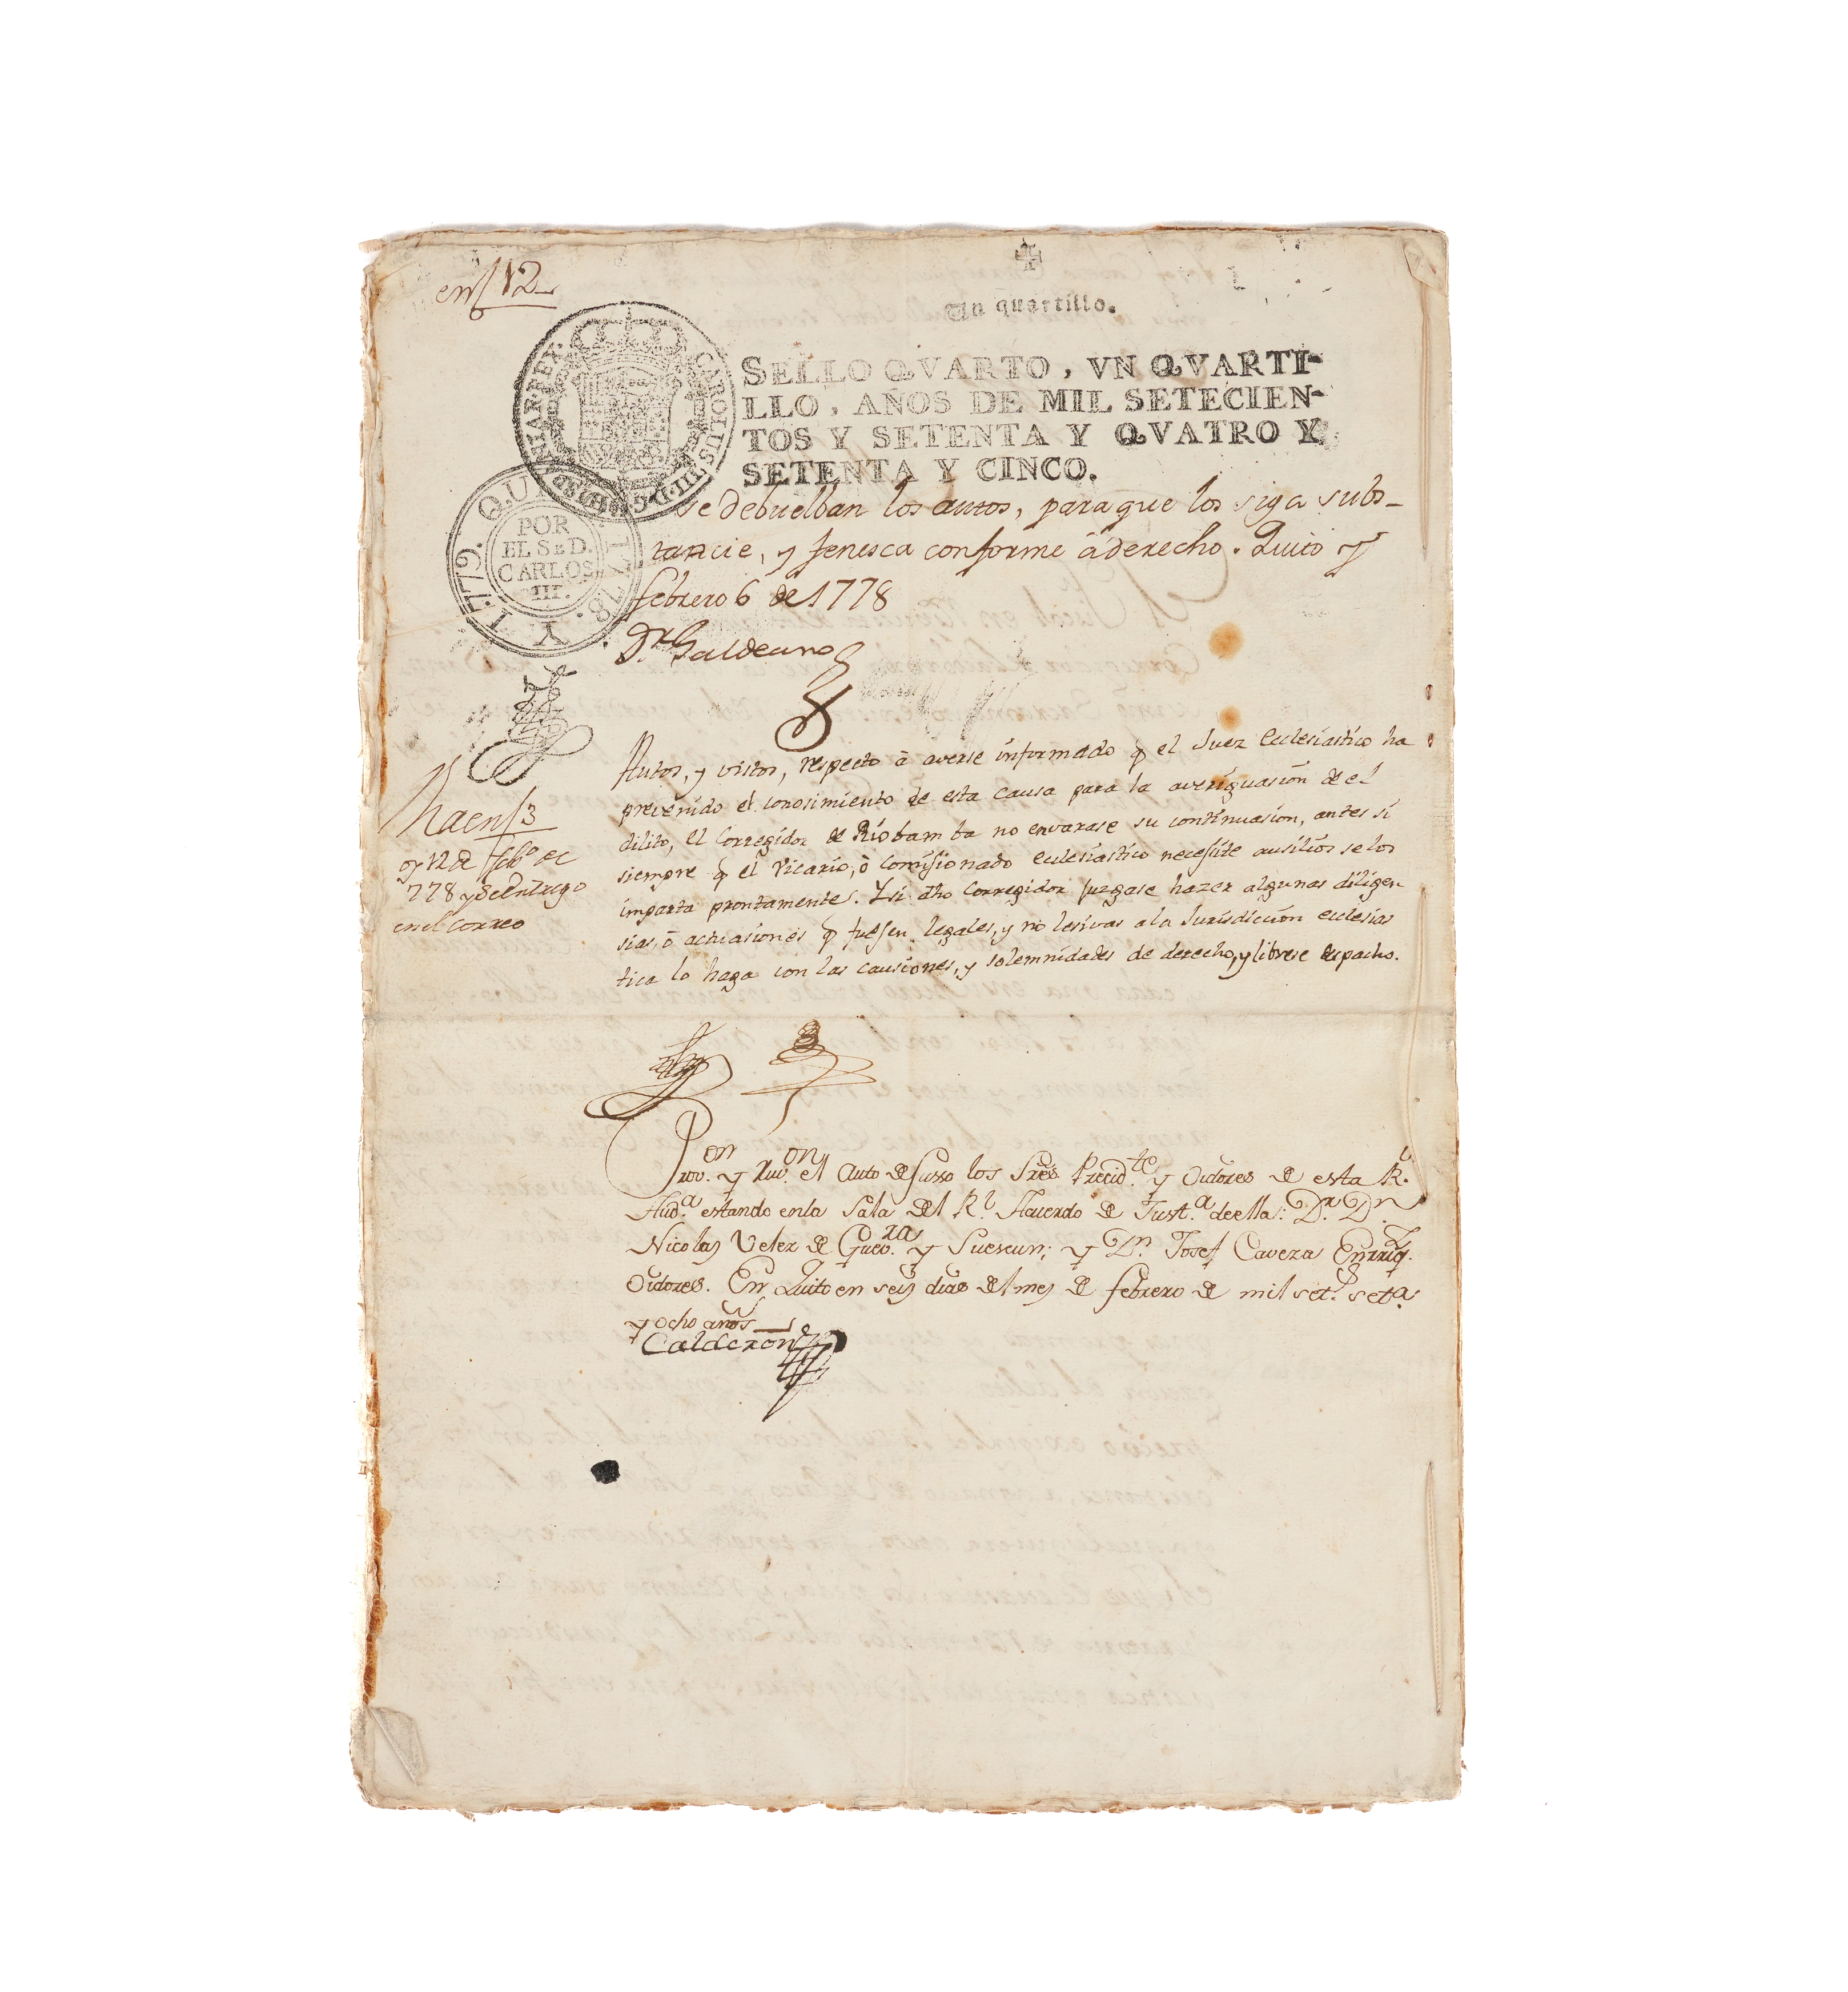 en f 12
Un quartillo.
1
SELLO QVARTO, VN QVARTI-
LLO, AÑOS DE MIL SETECIEN-
TOS Y SETENTA Y QVATRO Y
SETENTA Y CINCO.
CAROLUS III. D. G. HISP. ET IND. REX
QUITO 1778. Y 1779.
POR
EL S. D.
CARLOS
III.
se debuelban los autos, para que los siga subs-
tancie, y fenesca conforme â derecho. Quito y
febrero 6 de 1778
Dr. Galdeano
Autos, y vistos, respecto â averse informado q el Juez Eclesiastico ha
prevenido el conosimiento de esta causa para la averiguasion de el
dilito, el Corregidor de Riobamba no envarase su continuasion, antes si
siempre q el Vicario, ô Comisionado eclesiastico necesite ausilios se los
imparta prontamente. Y si dho Corregidor juzgase hazer algunas diligen
sias, ô actuasiones q fuesen legales, y no lesivas a la Jurisdicion eclesias
tica lo haga con las causiones, y solemnidades de derecho, y librese despacho.
en f 3
oy 12 de feb.o de
778 y se entrego
en el correo
Prov.on y Rub.on el Auto de Susso los Sres. Precid.te y Oidores de esta R.l
Aud.a estando en la Sala del R.l Acuerdo de Just.a de ella: Dr. Dn.
Nicolas Velez de Guev.ra y Suescun; y Dn. Josef Caveza Enrriq.z
Oidores. En Quito en seis dias del mes de febrero de mil set.s set.a
y ocho años
Calderon